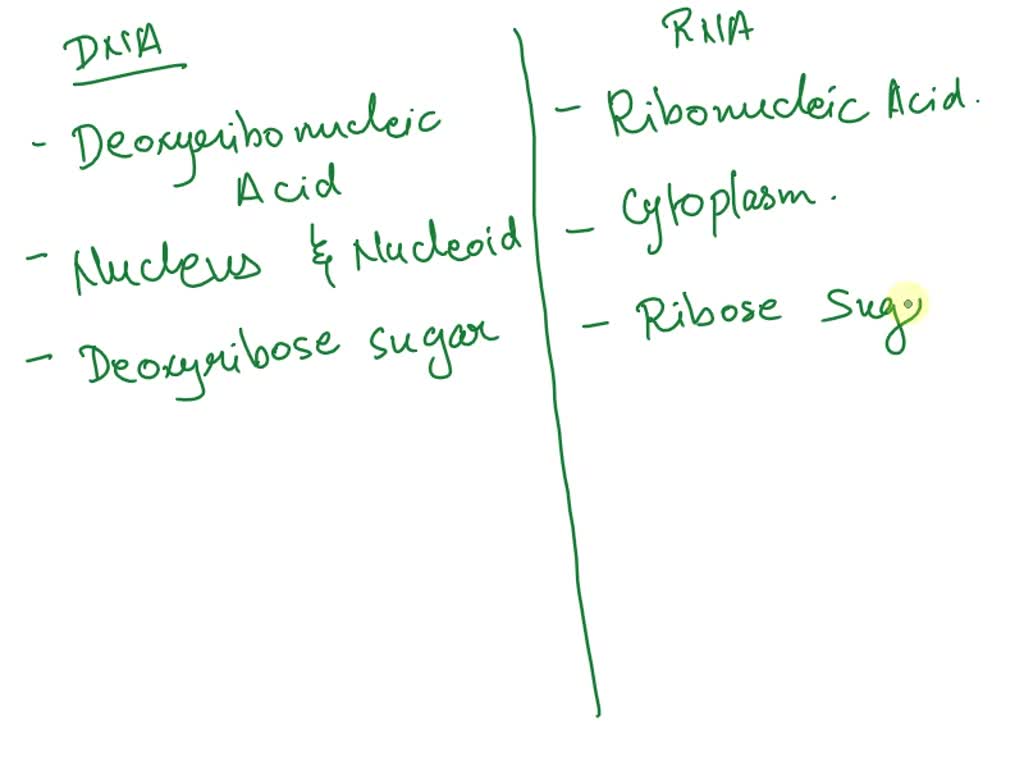 DNA
- Deoxyribonucleic
Acid
- Nucleus & Nucleoid
- Deoxyribose sugar
RNA
- Ribonucleic Acid.
- Cytoplasm.
- Ribose Sug